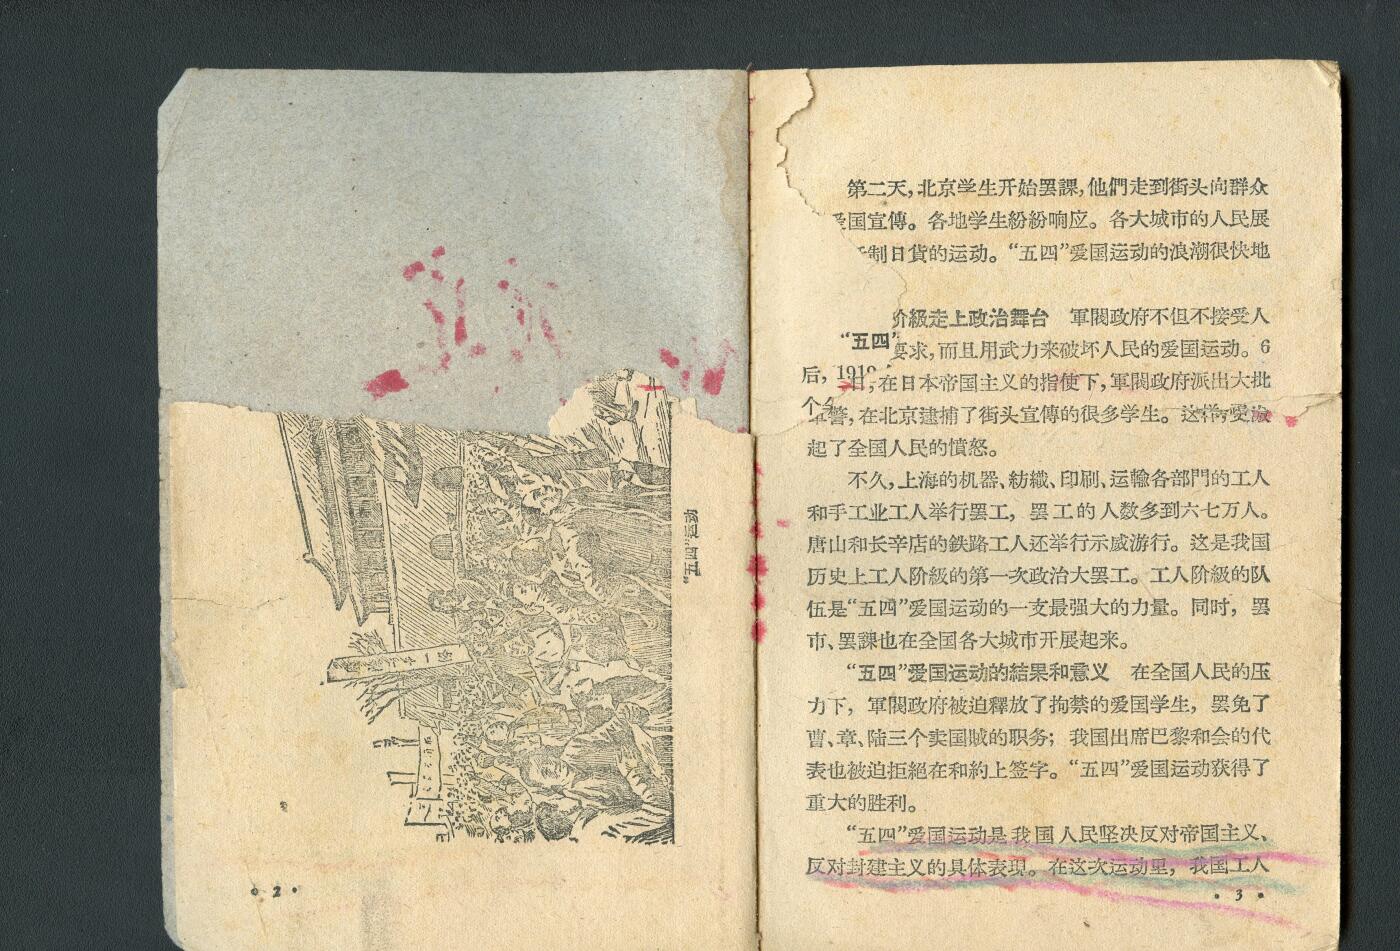 "五四"运动
• 2 •
第二天，北京学生开始罢課，他們走到街头向群众
爱国宣傳。各地学生紛紛响应。各大城市的人民展
制日貨的运动。“五四”爱国运动的浪潮很快地
阶級走上政治舞台　軍閥政府不但不接受人
“五四”
要求，而且用武力来破坏人民的爱国运动。6
后，1919
日，在日本帝国主义的指使下，軍閥政府派出大批
个
軍警，在北京逮捕了街头宣傳的很多学生。这样，更激
起了全国人民的憤怒。
不久，上海的机器、紡織、印刷、运輸各部門的工人
和手工业工人举行罢工，罢工的人数多到六七万人。
唐山和长辛店的鉄路工人还举行示威游行。这是我国
历史上工人阶級的第一次政治大罢工。工人阶級的队
伍是“五四”爱国运动的一支最强大的力量。同时，罢
市、罢課也在全国各大城市开展起来。
“五四”爱国运动的結果和意义　在全国人民的压
力下，軍閥政府被迫釋放了拘禁的爱国学生，罢免了
曹、章、陆三个卖国賊的职务；我国出席巴黎和会的代
表也被迫拒絕在和約上签字。“五四”爱国运动获得了
重大的胜利。
“五四”爱国运动是我国人民坚决反对帝国主义、
反对封建主义的具体表現。在这次运动里，我国工人
• 3 •